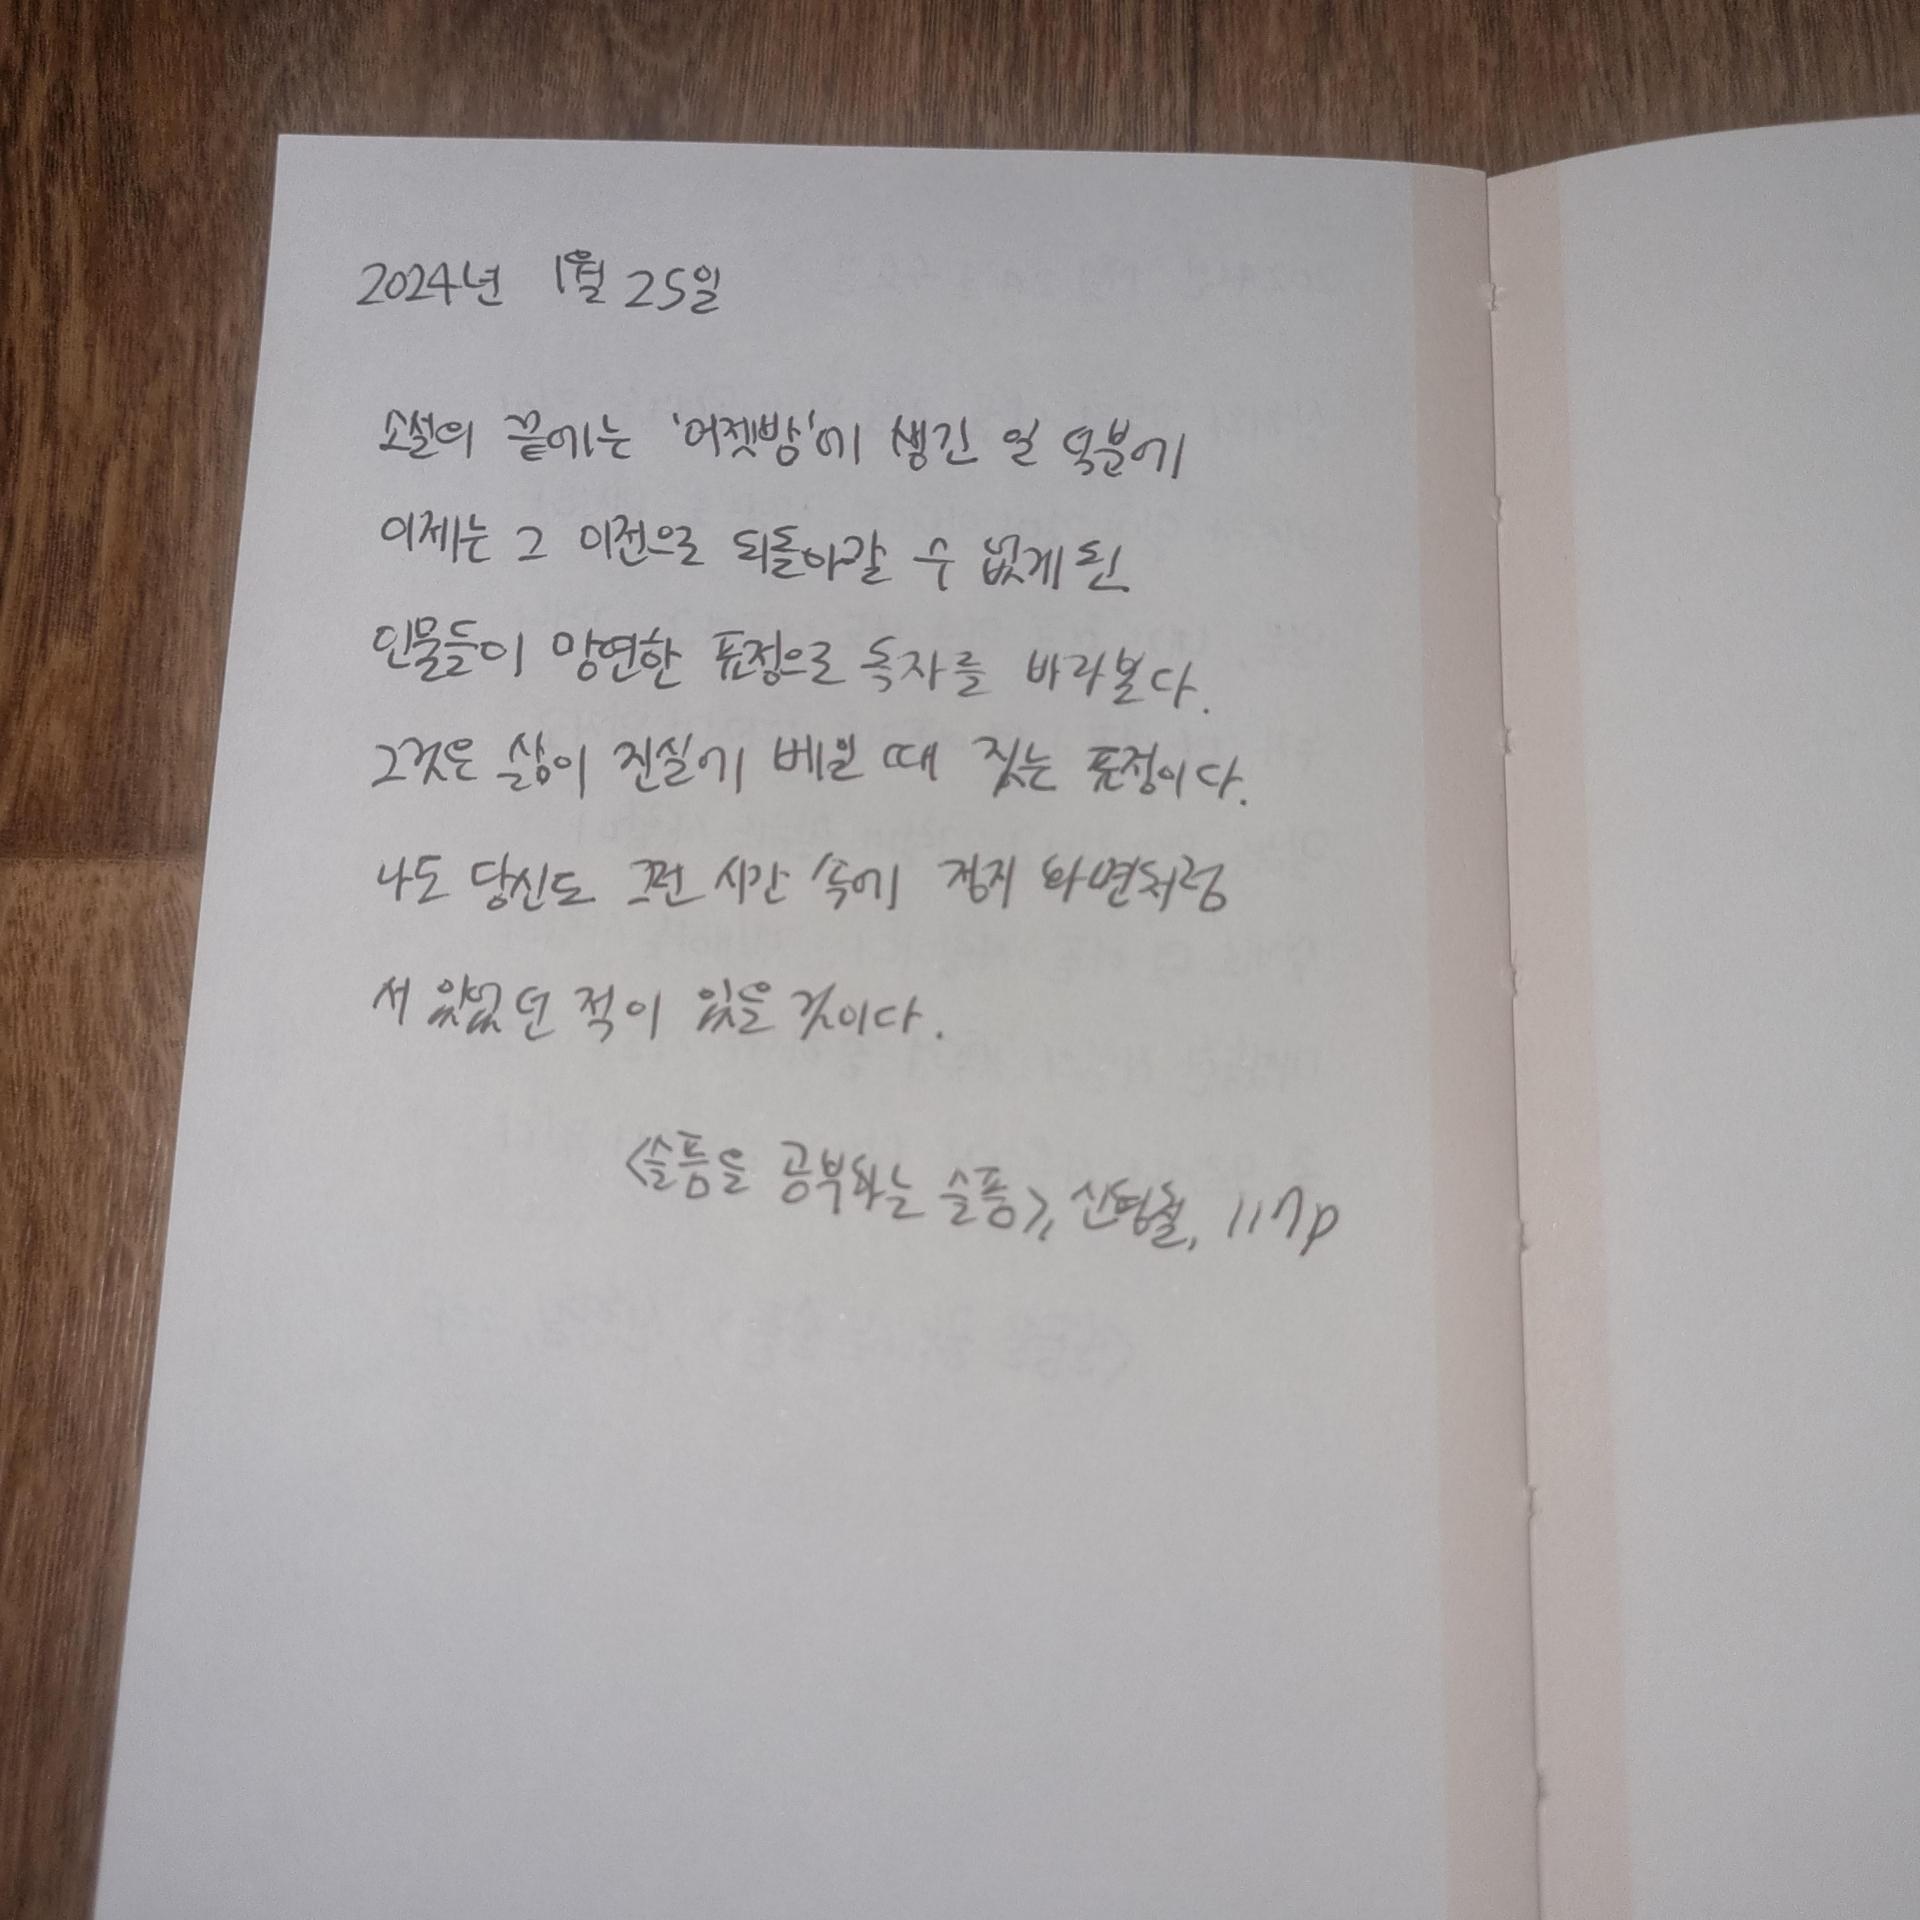 2024년 1월 25일
소설의 끝에는 '어젯밤'에 생긴 일 덕분에
이제는 그 이전으로 되돌아갈 수 없게 된
인물들이 망연한 표정으로 독자를 바라본다.
그것은 삶이 진실에 베일 때 짓는 표정이다.
나도 당신도 그런 시간 속에 정지 화면처럼
서 있었던 적이 있을 것이다.
<슬픔을 공부하는 슬픔>, 신형철, 117p